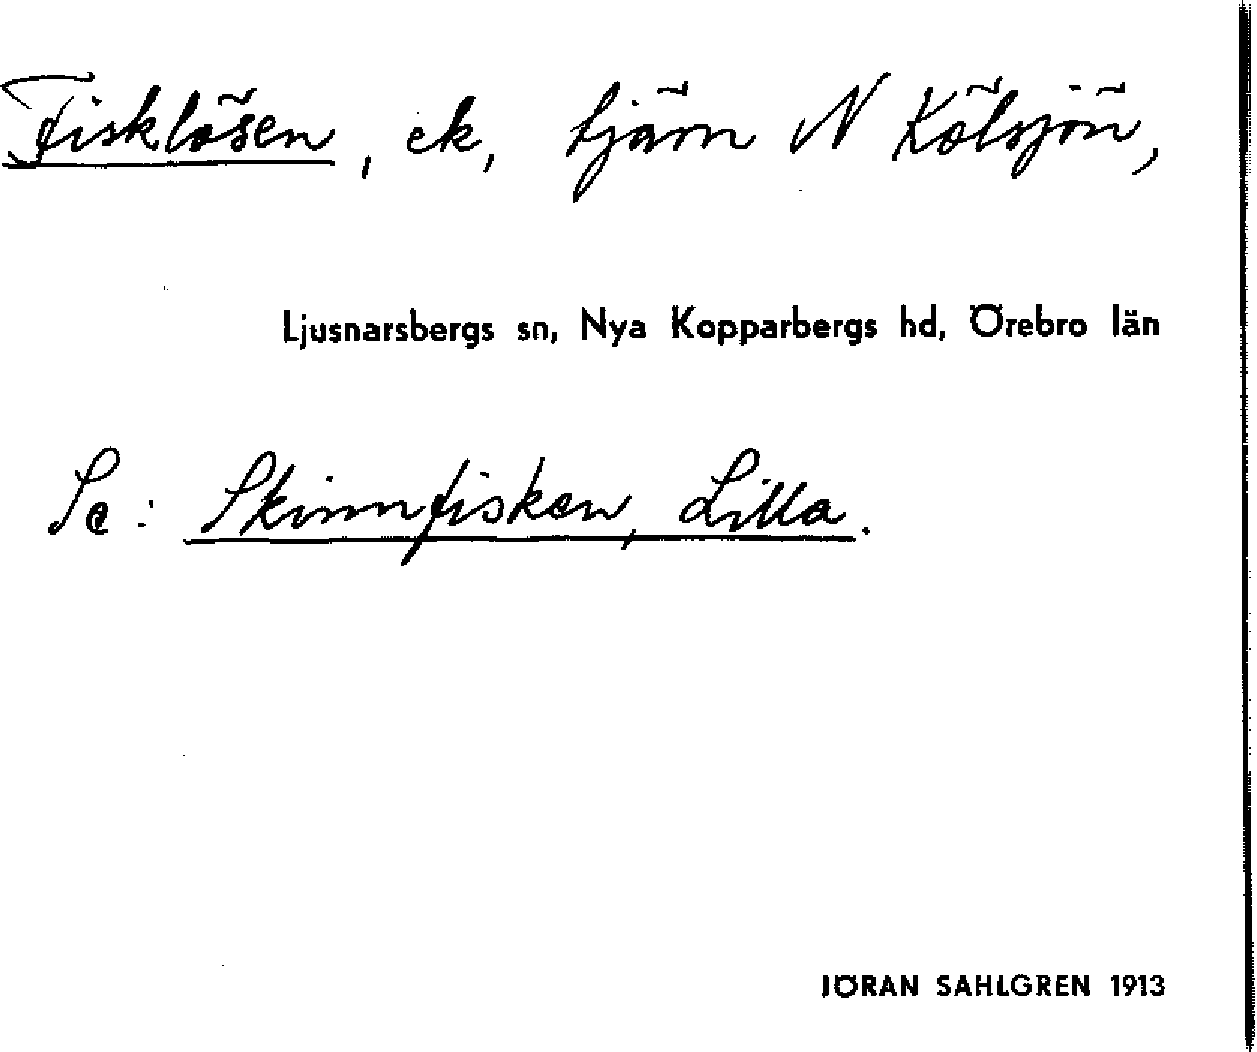 Fisklösen, ek, tjärn N Kölsjön,
Ljusnarsbergs sn, Nya Kopparbergs hd, Örebro län
Se: Skinnfisken, Lilla.
JÖRAN SAHLGREN 1913